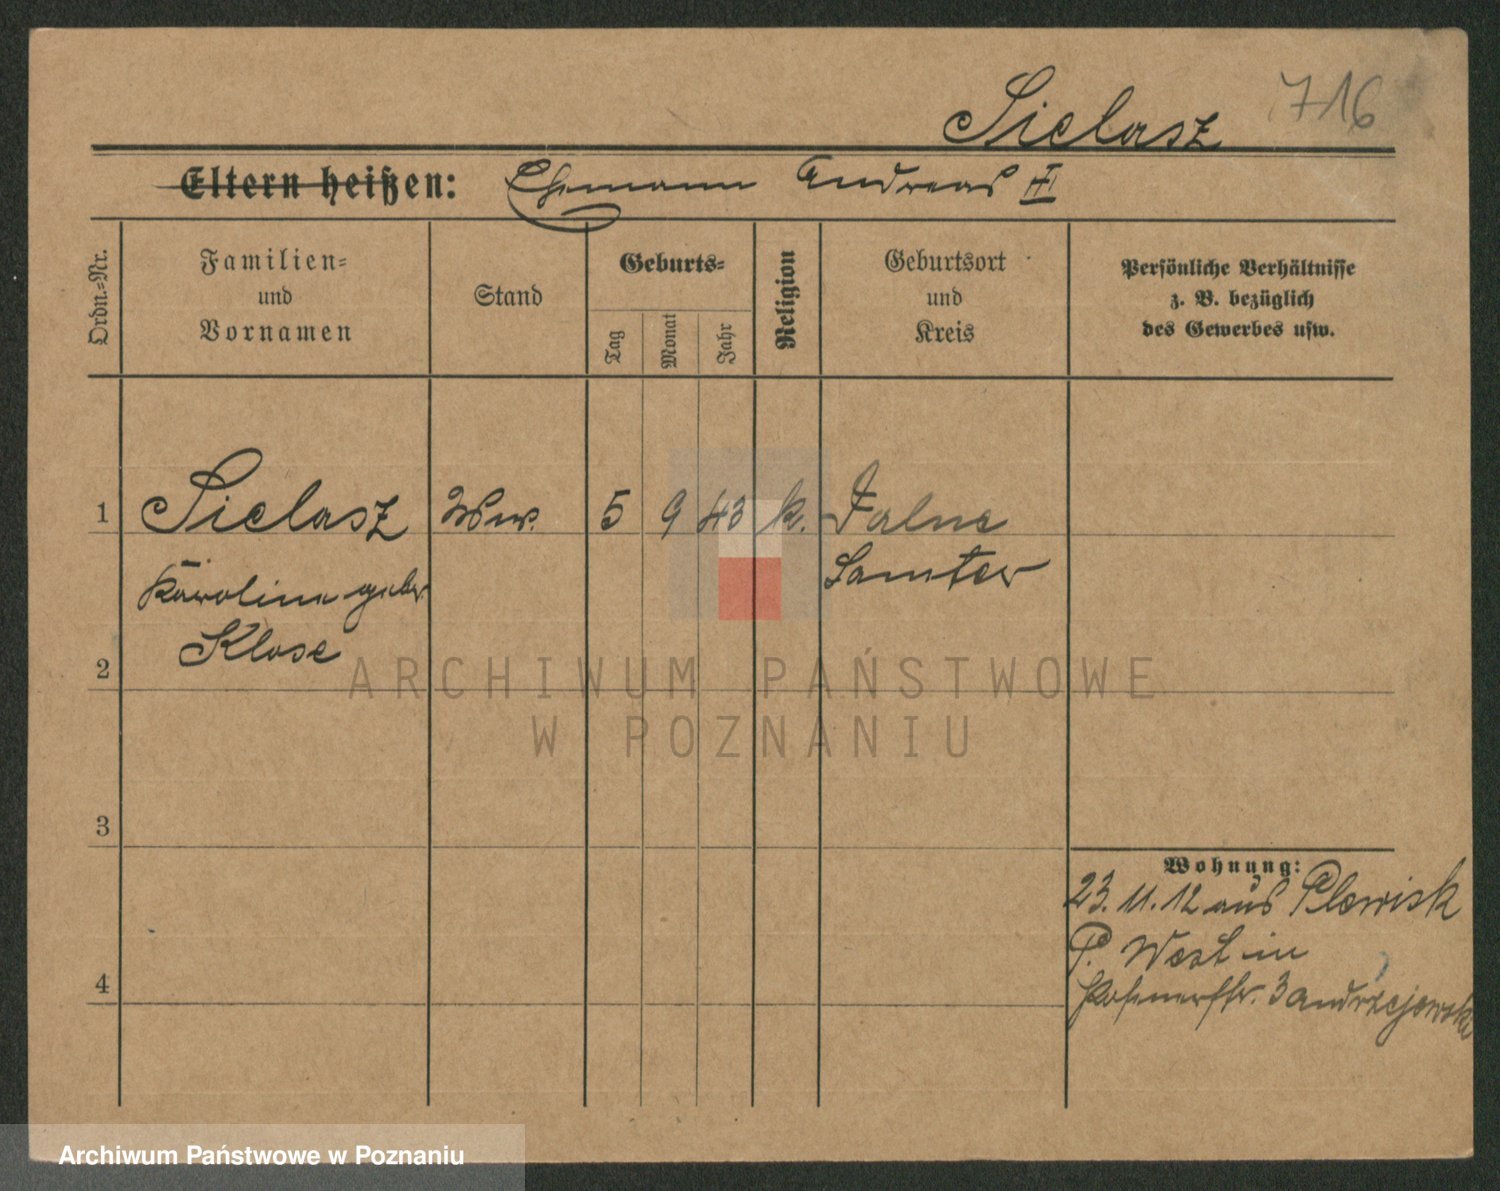 Sielasz 716
Eltern heißen: Ehemann Andreas II
Ordn.-Nr.
Familien-
und
Vornamen
Stand
Geburts-
Tag
Monat
Jahr
Religion
Geburtsort
und
Kreis
Persönliche Verhältnisse
z. B. bezüglich
des Gewerbes usw.
1 Sielasz Ww. 5 9 43 k.
Samter
Karolina geb.
Klose
2
3
4
Wohnung:
23. 11. 12 aus Plewisk
P. West in
Posenerstr. 3 Andrzejewski
ARCHIWUM PAŃSTWOWE
W POZNANIU
Archiwum Państwowe w Poznaniu